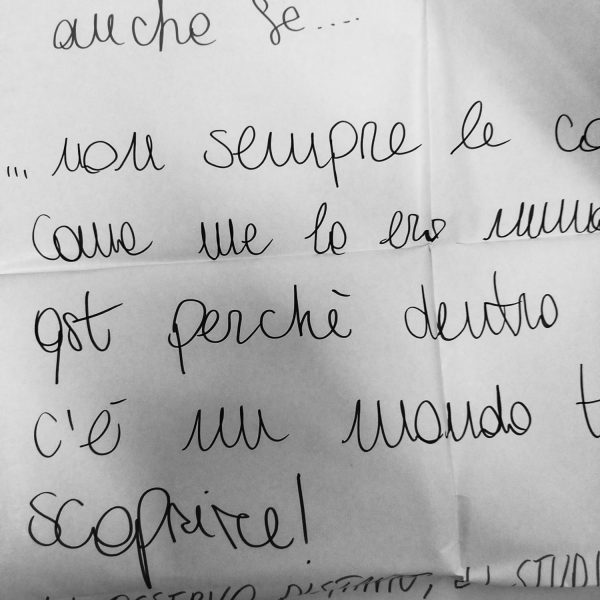 anche se....
... non sempre le co
come me le ero imma
qst perchè dentro
c'é un mondo t
scoprire!
OSSERVO DISTANTE, STUDI